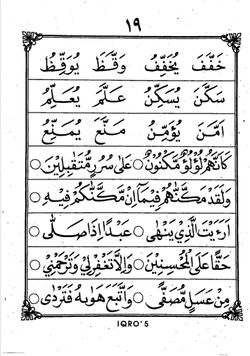 ١٩
خَفَّفَ يُخَفِّفُ وَقَّظَ يُوَقِّظُ
سَكَّنَ يُسَكِّنُ عَلَّمَ يُعَلِّمُ
اَمَّنَ يُؤَمِّنُ مَنَّعَ يُمَنِّعُ
كَاَنَّهُمْ لُؤْلُؤٌ مَّكْنُوْنٌ ○ عَلٰى سُرُرٍ مُّتَقٰبِلِيْنَ ○
وَلَقَدْ مَكَّنّٰهُمْ فِيْمَآ اِنْ مَّكَّنّٰكُمْ فِيْهِ ○
اَرَءَيْتَ الَّذِيْ يَنْهٰى ○ عَبْدًا اِذَا صَلّٰى ○
حَقًّا عَلَى الْمُحْسِنِيْنَ ○ وَاِلَّا تَغْفِرْ لِيْ وَتَرْحَمْنِيْ ○
مِنْ عَسَلٍ مُّصَفًّى ○ وَاتَّبَعَ هَوٰىهُ فَتَرْدٰى ○
IQRO' 5